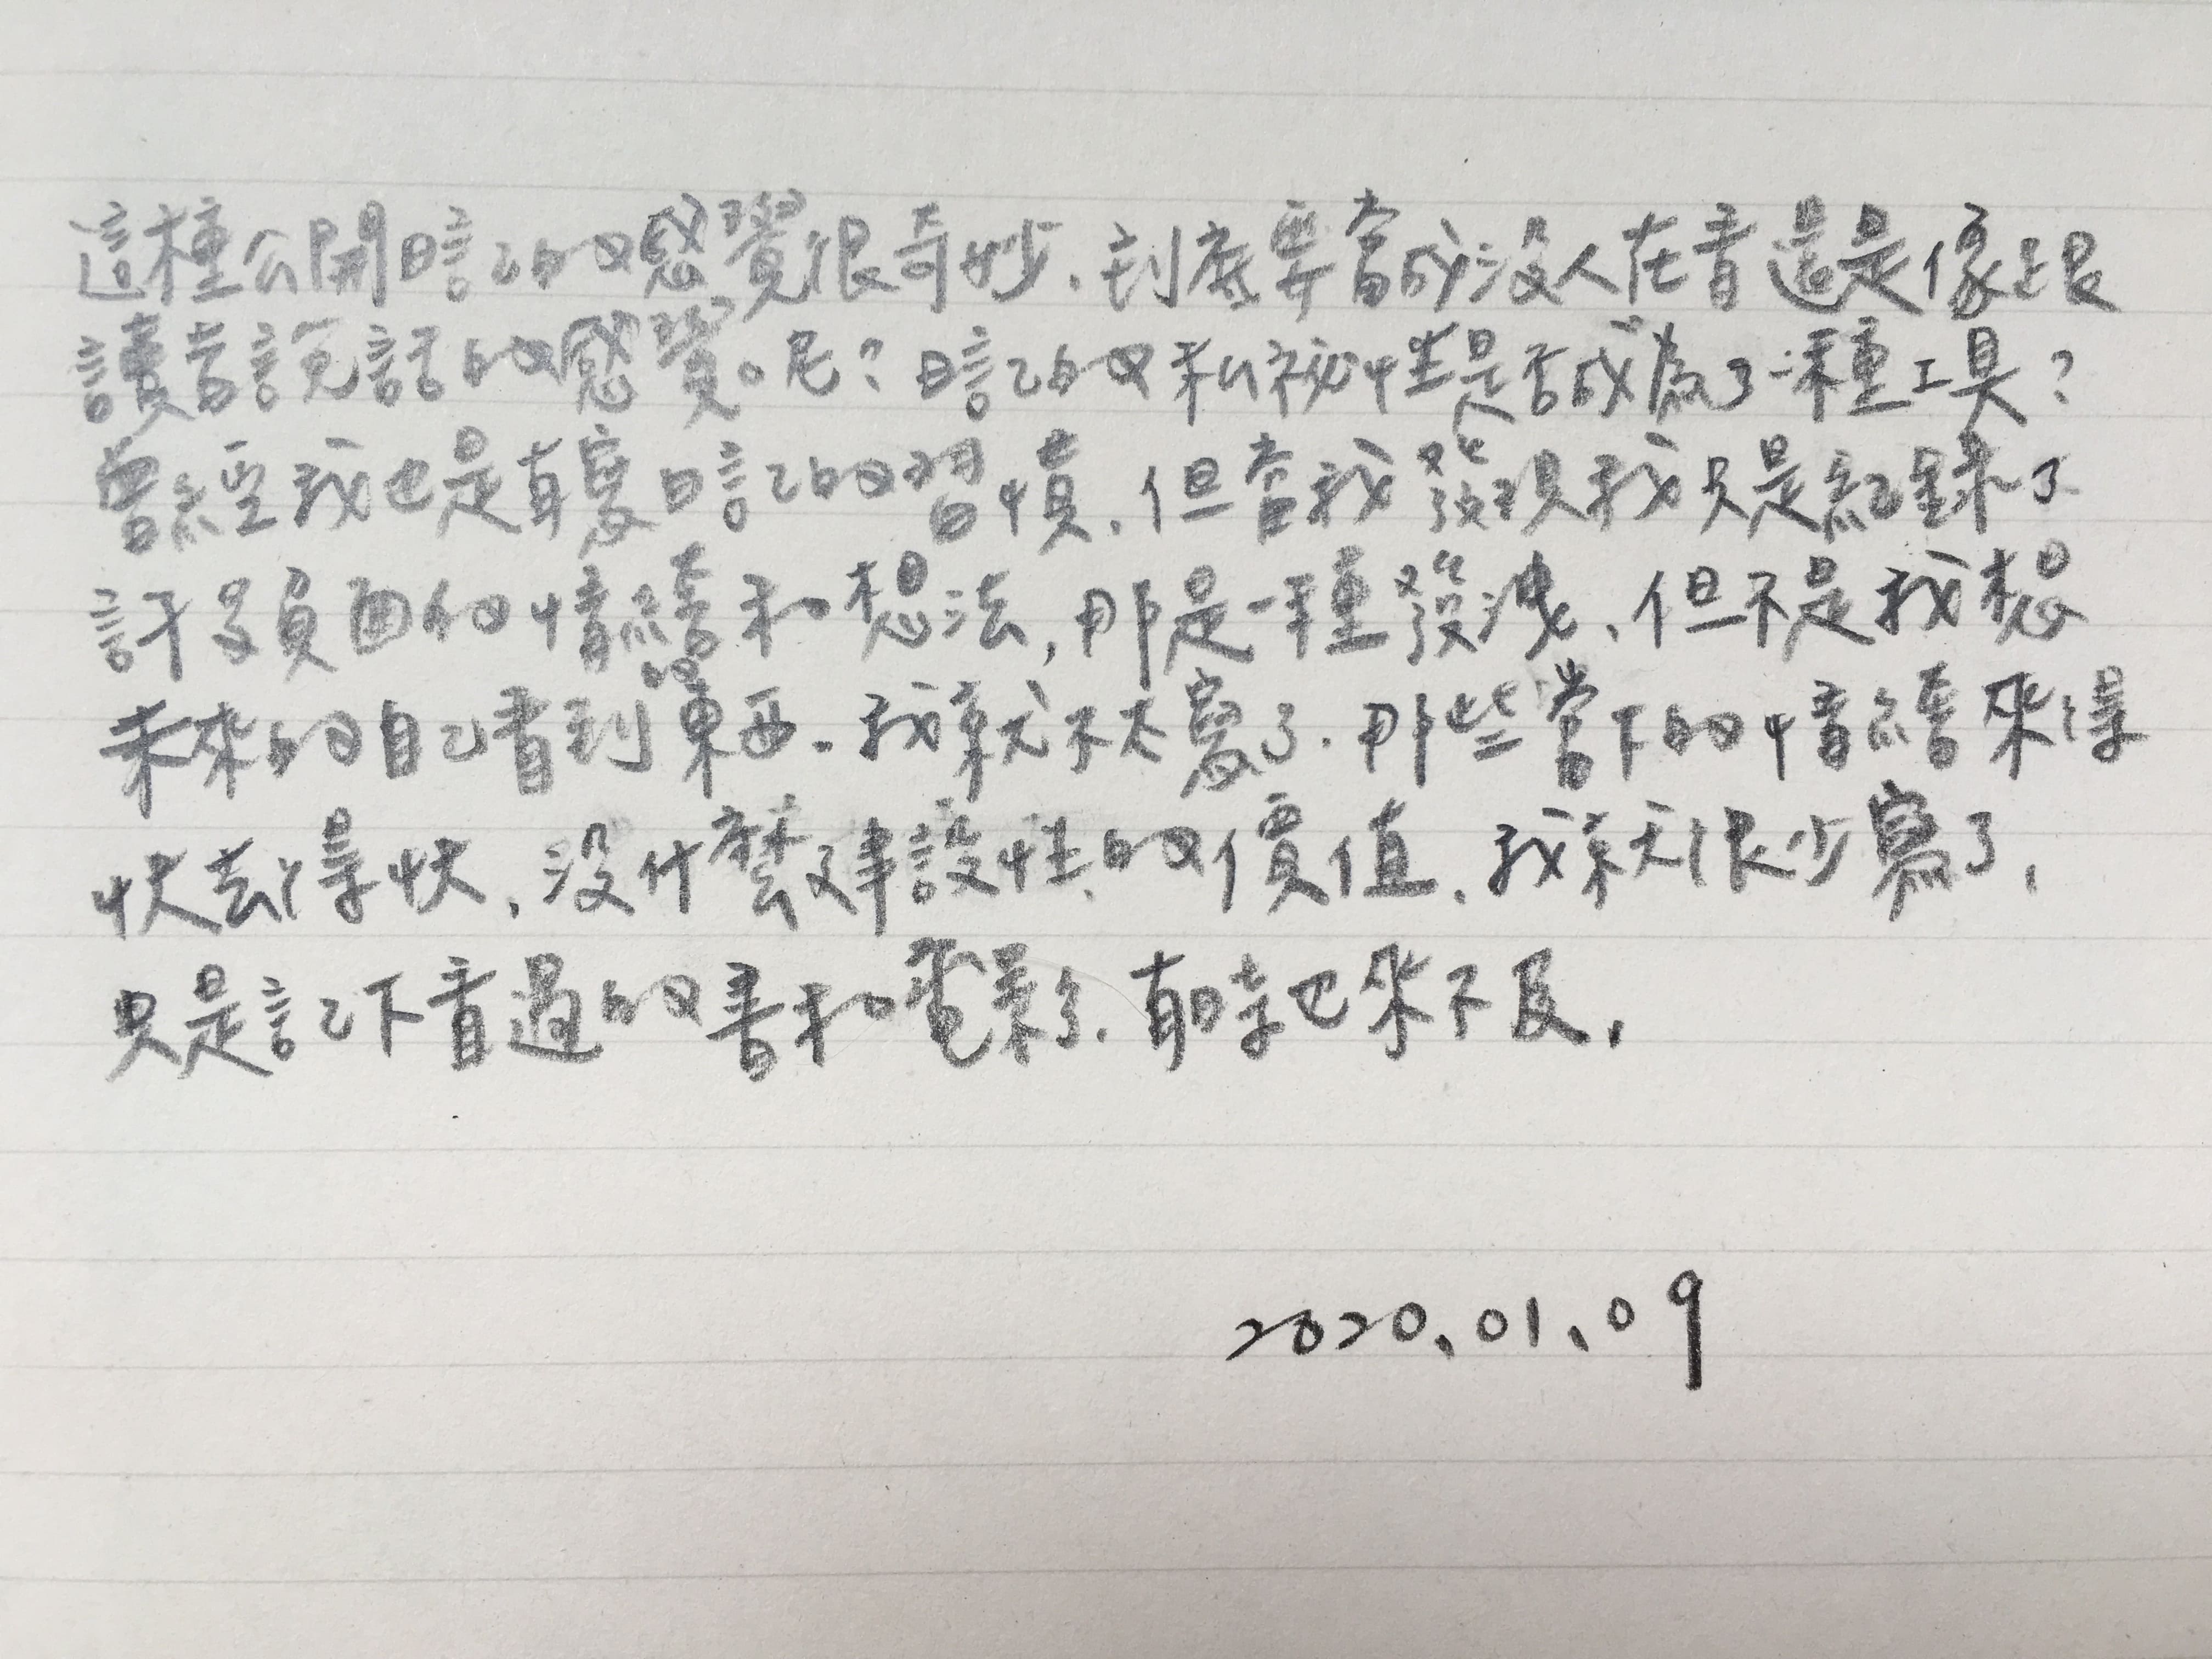 這種公開日記的感覺很奇妙.到底要當成沒人在看還是像跟
讀者說話的感覺。呢?日記的私祕性是否成為了一種工具?
曾經我也是有寫日記的習慣.但當我發現我只是紀錄了
許多負面的情緒和想法,那是一種發洩.但不是我想
未來的自己看到的東西.我就不太寫了.那些當下的情緒來得
快去得快.沒什麼建設性的價值.我就很少寫了.
只是記下看過的書和電影了.有時也來不及.
2020.01.09